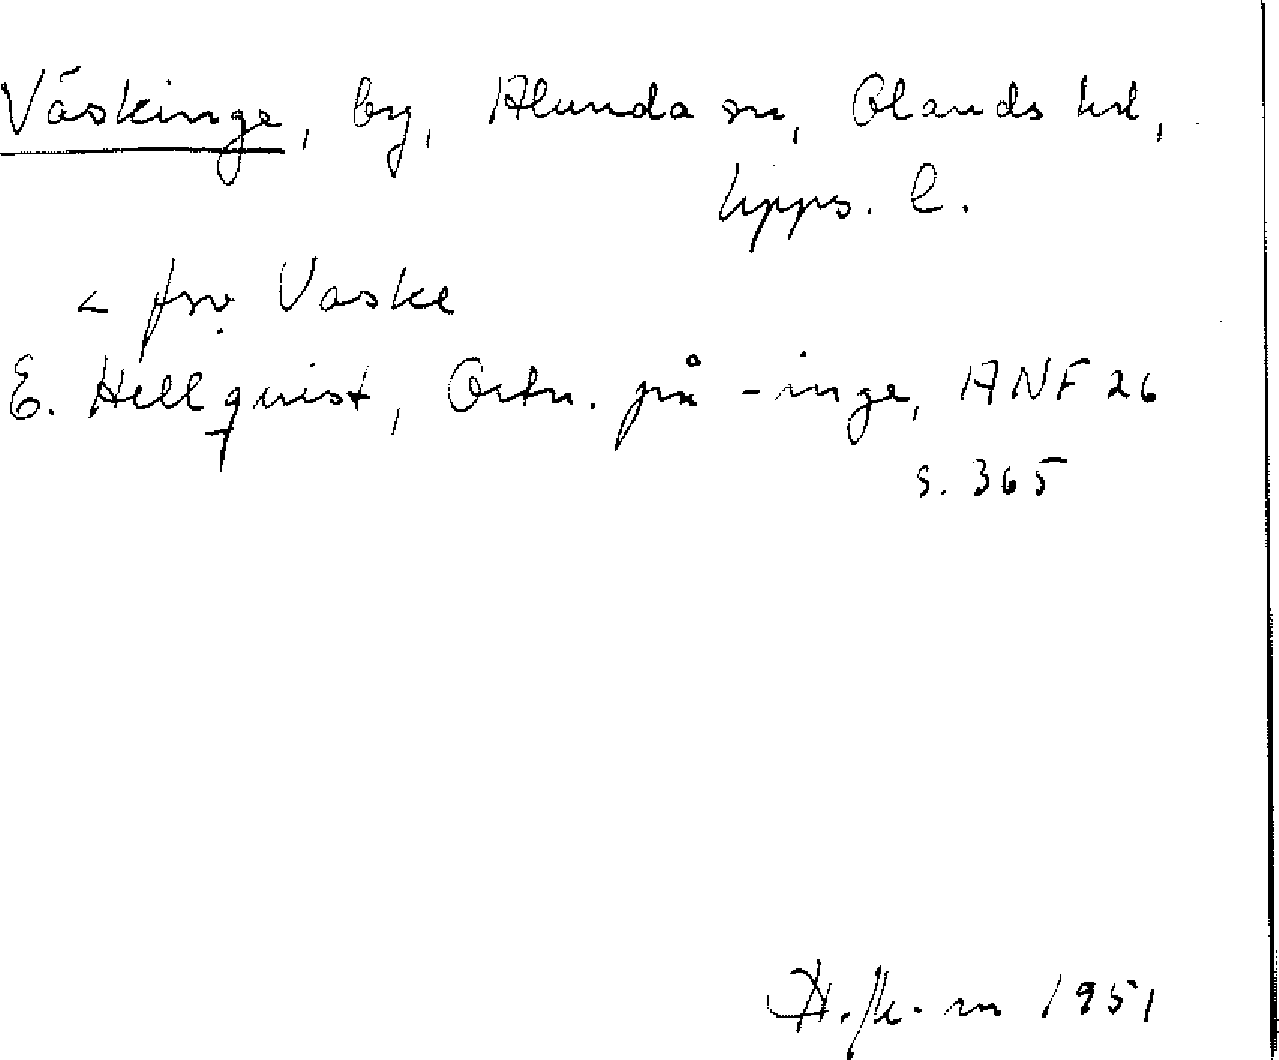 Väskinge, by, Alunda sn, Olands hd,
Upps. l.
< fsv. Vaske
E. Hellquist, Ortn. på -inge, ANF 26
s. 365
1951